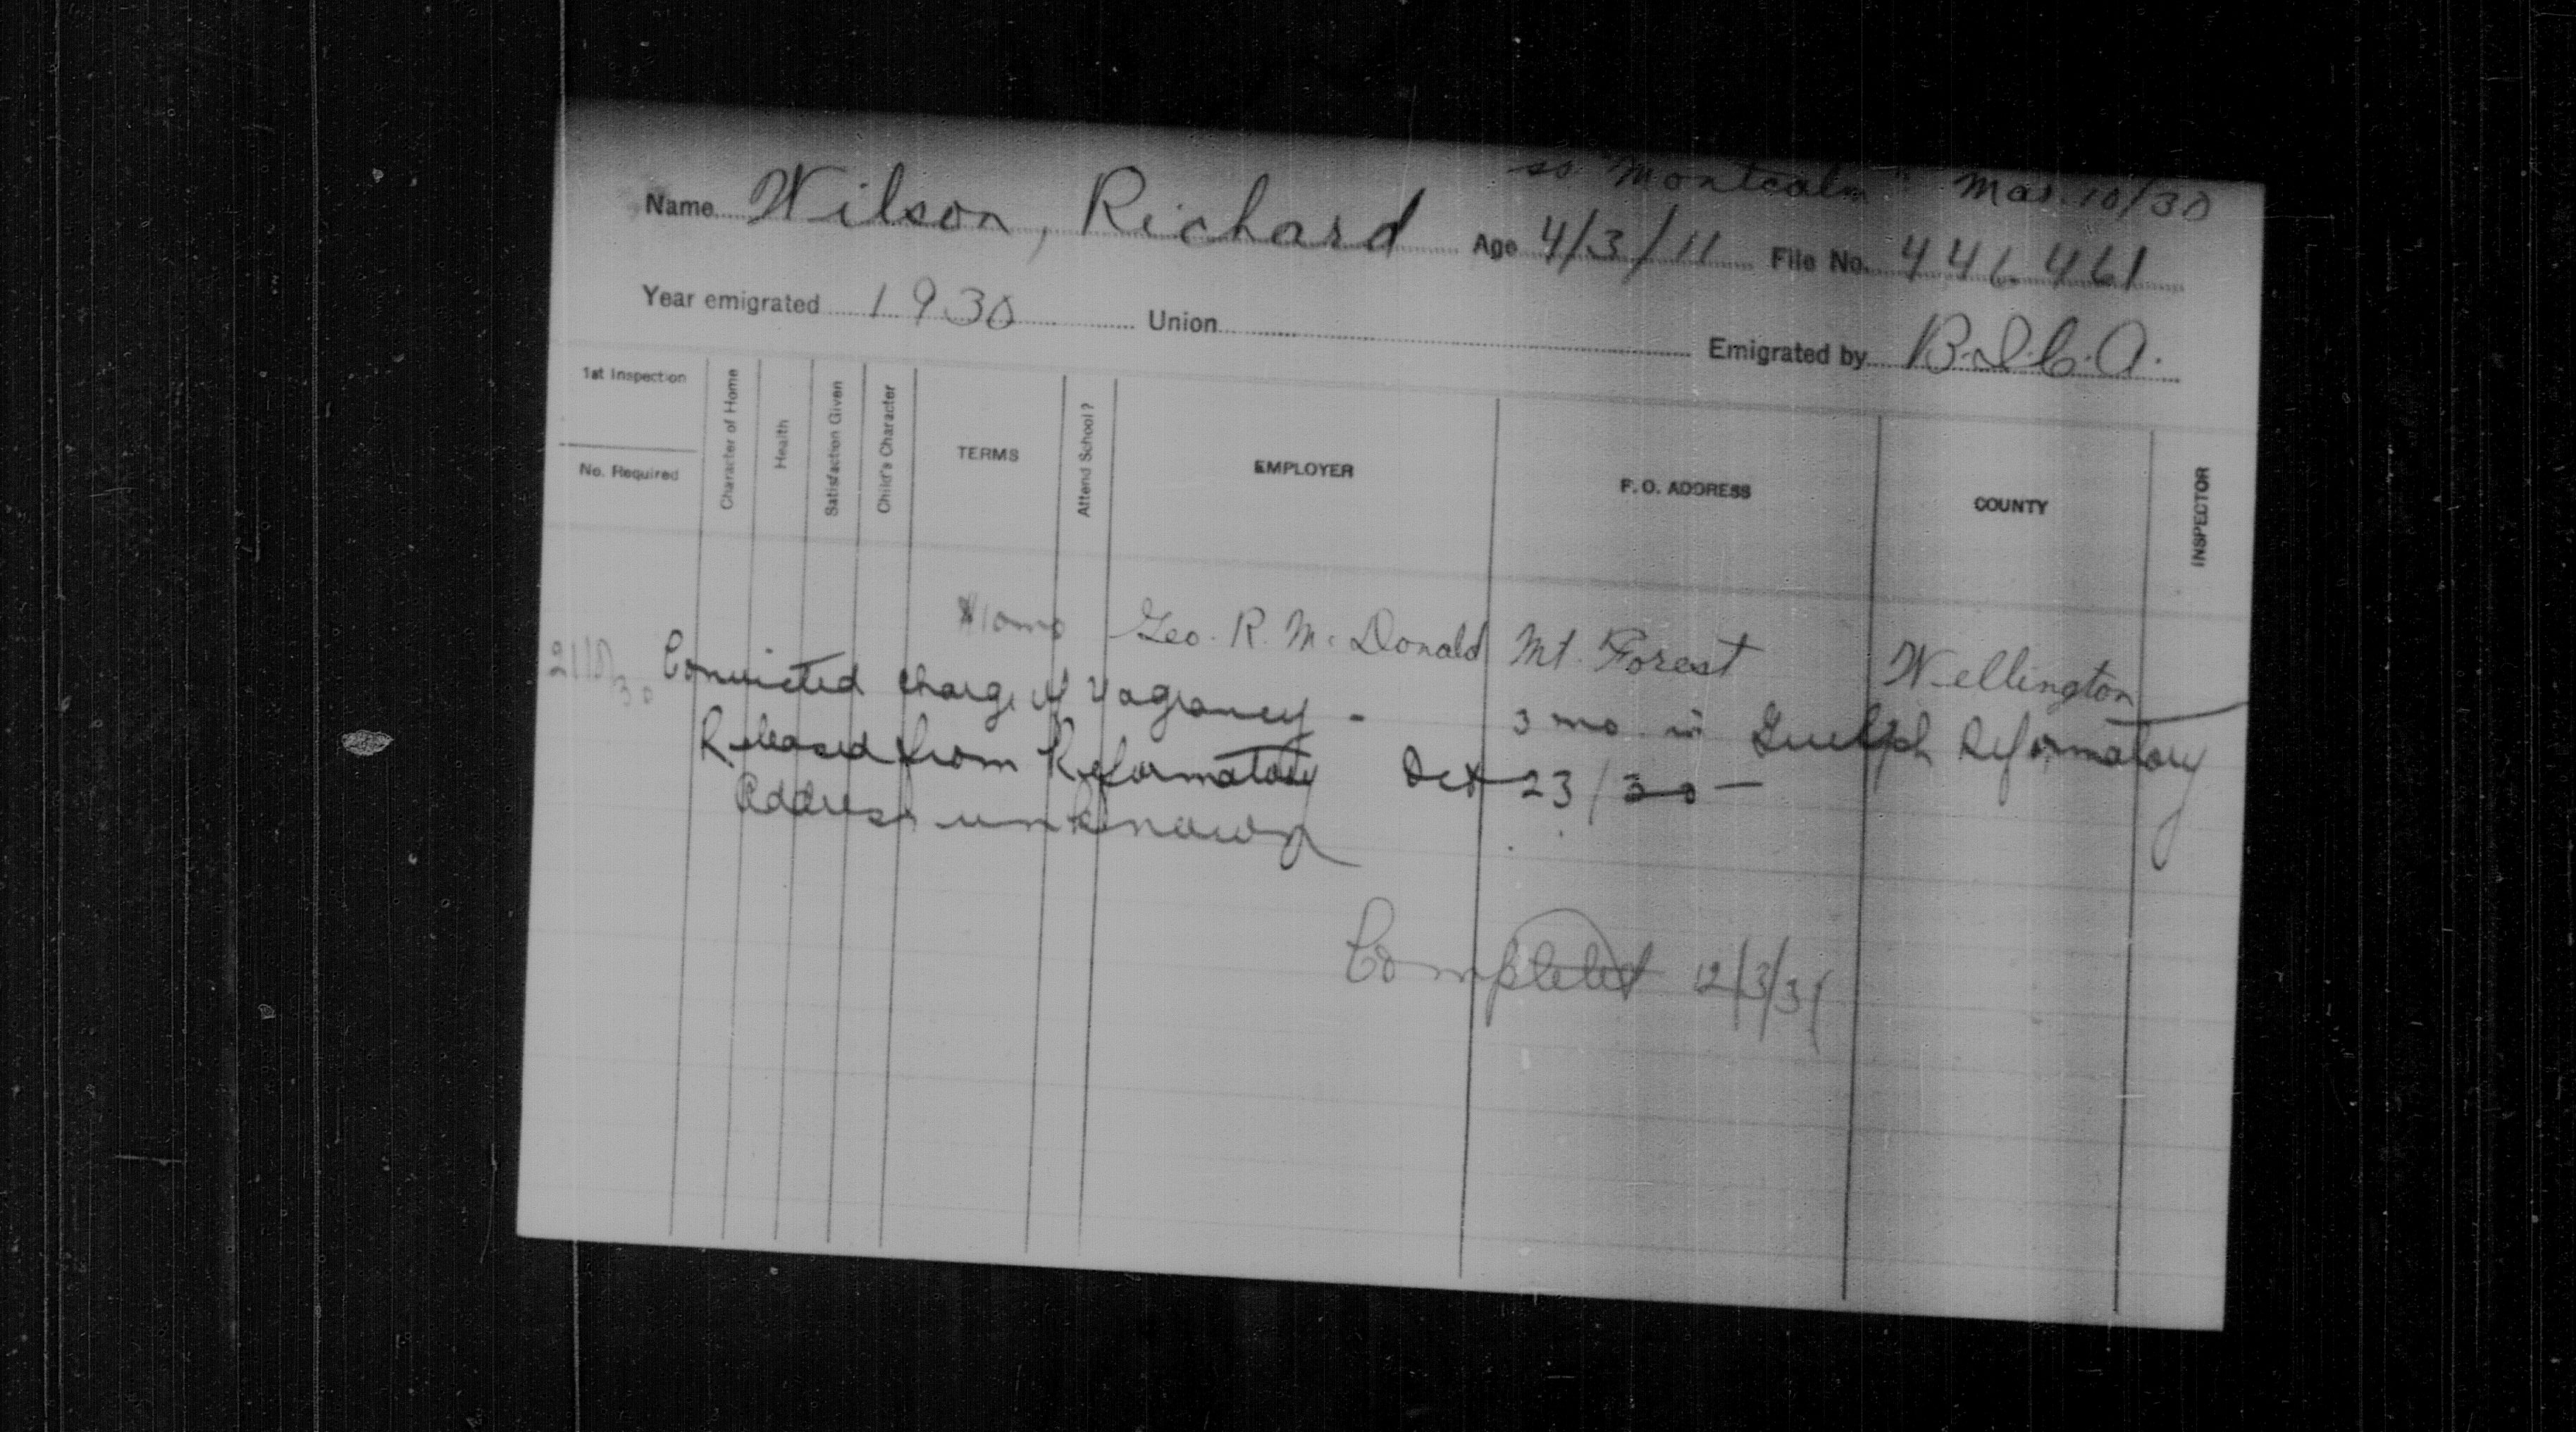 ss "Montcalm" Mar. 10/30
Name Wilson, Richard Age 4/3/11 File No. 446461
Year emigrated 1930 Union Emigrated by B.I.C.A.
1st Inspection
No. Required
Character of Home
Health
Satisfaction Given
Child's Character
TERMS
Attend School?
EMPLOYER
P. O. ADDRESS
COUNTY
INSPECTOR
$10 mo Geo. R. McDonald Mt. Forest Wellington
Convicted charge of Vagrancy - 3 mo in Guelph Reformatory
Released from Reformatory Oct 23/30 -
Address unknown
Completed 12/3/31